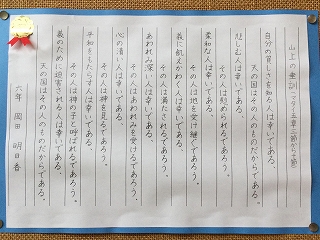 山上の垂訓 マタイ五章三節から十節
自分の貧しさを知る人は幸いである。
天の国はその人のものだからである。
悲しむ人は幸いである。
その人は慰められるであろう。
柔和な人は幸いである。
その人は地を受け継ぐであろう。
義に飢えかわく人は幸いである。
その人は満たされるであろう。
あわれみ深い人は幸いである。
その人はあわれみを受けるであろう。
心の清い人は幸いである。
その人は神を見るであろう。
平和をもたらす人は幸いである。
その人は神の子と呼ばれるであろう。
義のために迫害される人は幸いである。
天の国はその人のものだからである。
六年 岡田 明日香